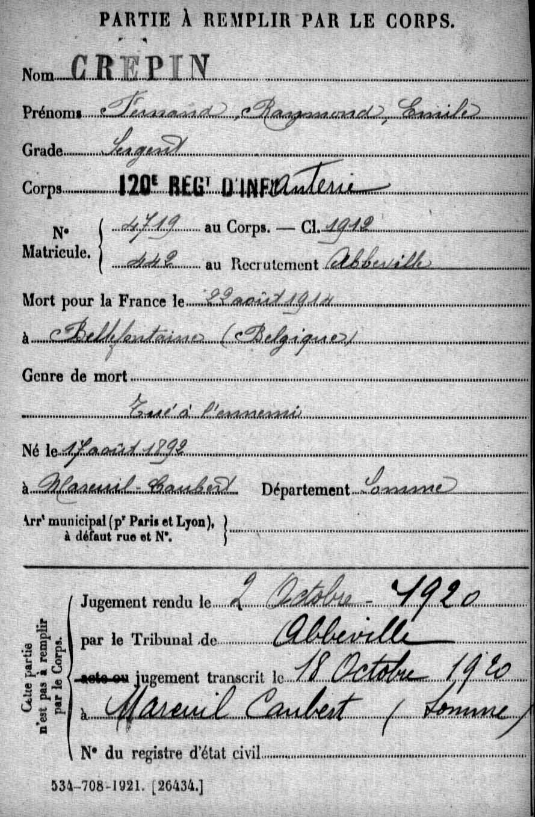 PARTIE À REMPLIR PAR LE CORPS.
Nom CREPIN
Prénoms Fernand, Raymond, Emile
Grade Sergent
Corps 120E REGT D'INFanterie
N° Matricule. 4719 au Corps. — Cl. 1912
442 au Recrutement Abbeville
Mort pour la France le 22 août 1914
à Bellefontaine (Belgique)
Genre de mort
Tué à l'ennemi
Né le 17 août 1892
à Mareuil-Caubert Département Somme
Arrt municipal (pr Paris et Lyon), à défaut rue et N°.
Cette partie n'est pas à remplir par le Corps.
Jugement rendu le 2 Octobre - 1920
par le Tribunal de Abbeville
acte ou jugement transcrit le 18 Octobre 1920
à Mareuil Caubert (Somme)
N° du registre d'état civil
534-708-1921. [26434.]